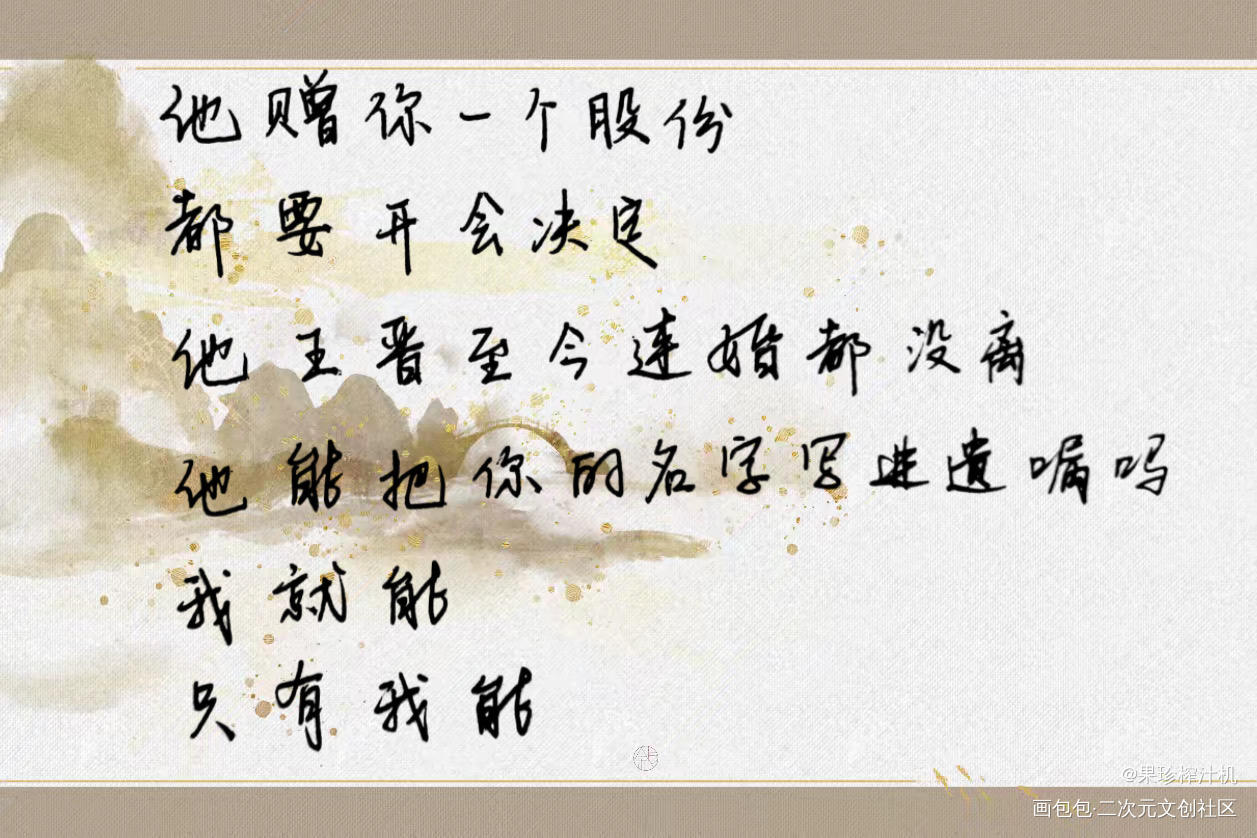 他赠你一个股份
都要开会决定
他王晋至今连婚都没离
他能把你的名字写进遗嘱吗
我就能
只有我能
@果珍榨汁机
画包包·二次元文创社区